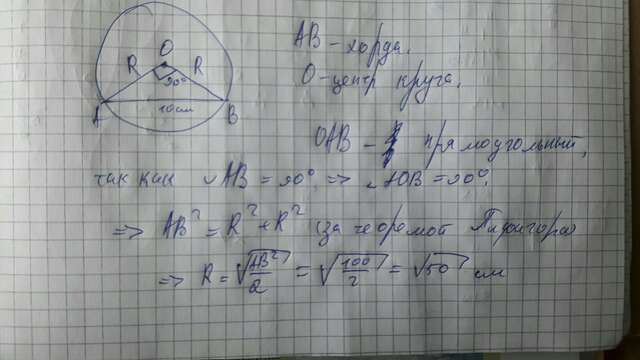 O
R R
90°
A 10см B
AB - хорда.
O - центр круга.
OAB - прямоугольный,
так как ◡AB = 90° => ∠AOB = 90°.
=> AB² = R² + R² (за теоремой Пифагора)
=> R = √(AB²/2) = √(100/2) = √50 см